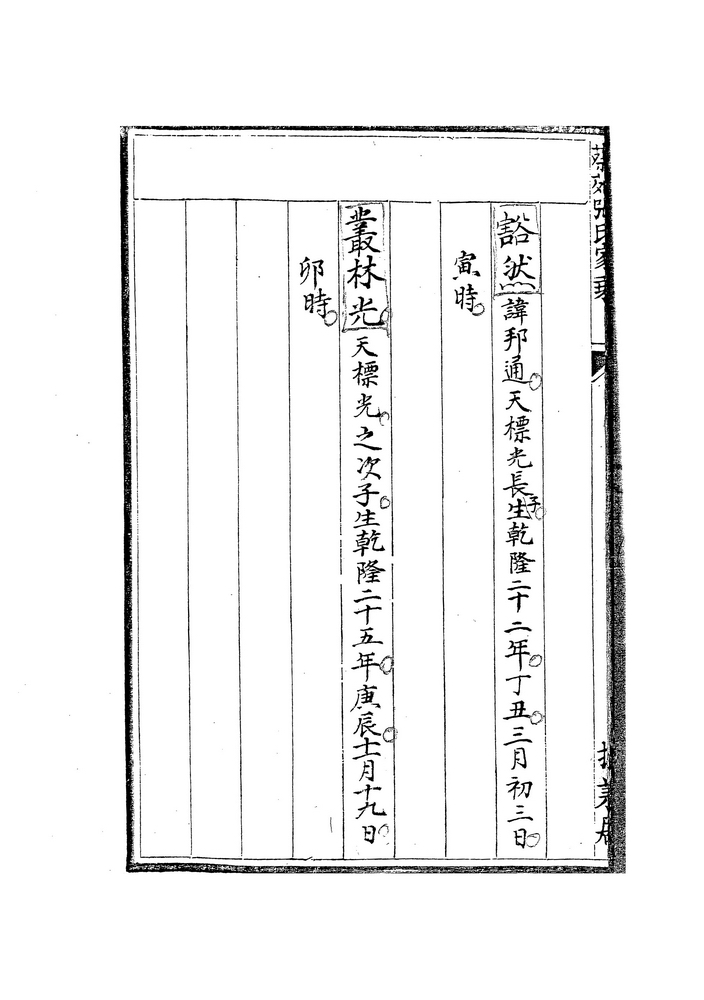 張氏家
豁然諱邦通天標光長子生乾隆二十二年丁丑三月初三日
寅時
叢林光天標光之次子生乾隆二十五年庚辰十一月十九日
卯時